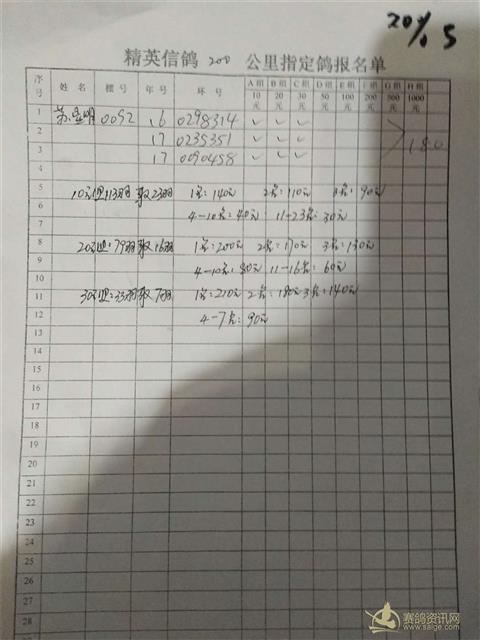 20% 5
精英信鸽 200 公里指定鸽报名单
序号 姓 名 棚 号 年 号 环 号 A 组 10 元 B 组 20 元 C 组 30 元 D 组 50 元 E 组 100 元 F 组 200 元 G 组 500 元 H 组 1000 元
1 0092 16 0298314 ✓ ✓ ✓
2 17 0235351 ✓ ✓ ✓ 180
3 17 0090458 ✓ ✓ ✓
4
5 10元组113羽取23羽 1名:140元 2名:110元 3名:90元
6
7 4-10名:40元 11-23名:30元
8 20元组:79羽取16羽 1名:200元 2名:170元 3名:130元
9
10 4-10名:80元 11-16名:60元
11 30元组:33羽取7羽 1名:210元 2名:180元 3名:140元
12 4-7名:90元
13
14
15
16
17
18
19
20
21
22
23
24
25
26
27
28
赛鸽资讯网
www.saige.com